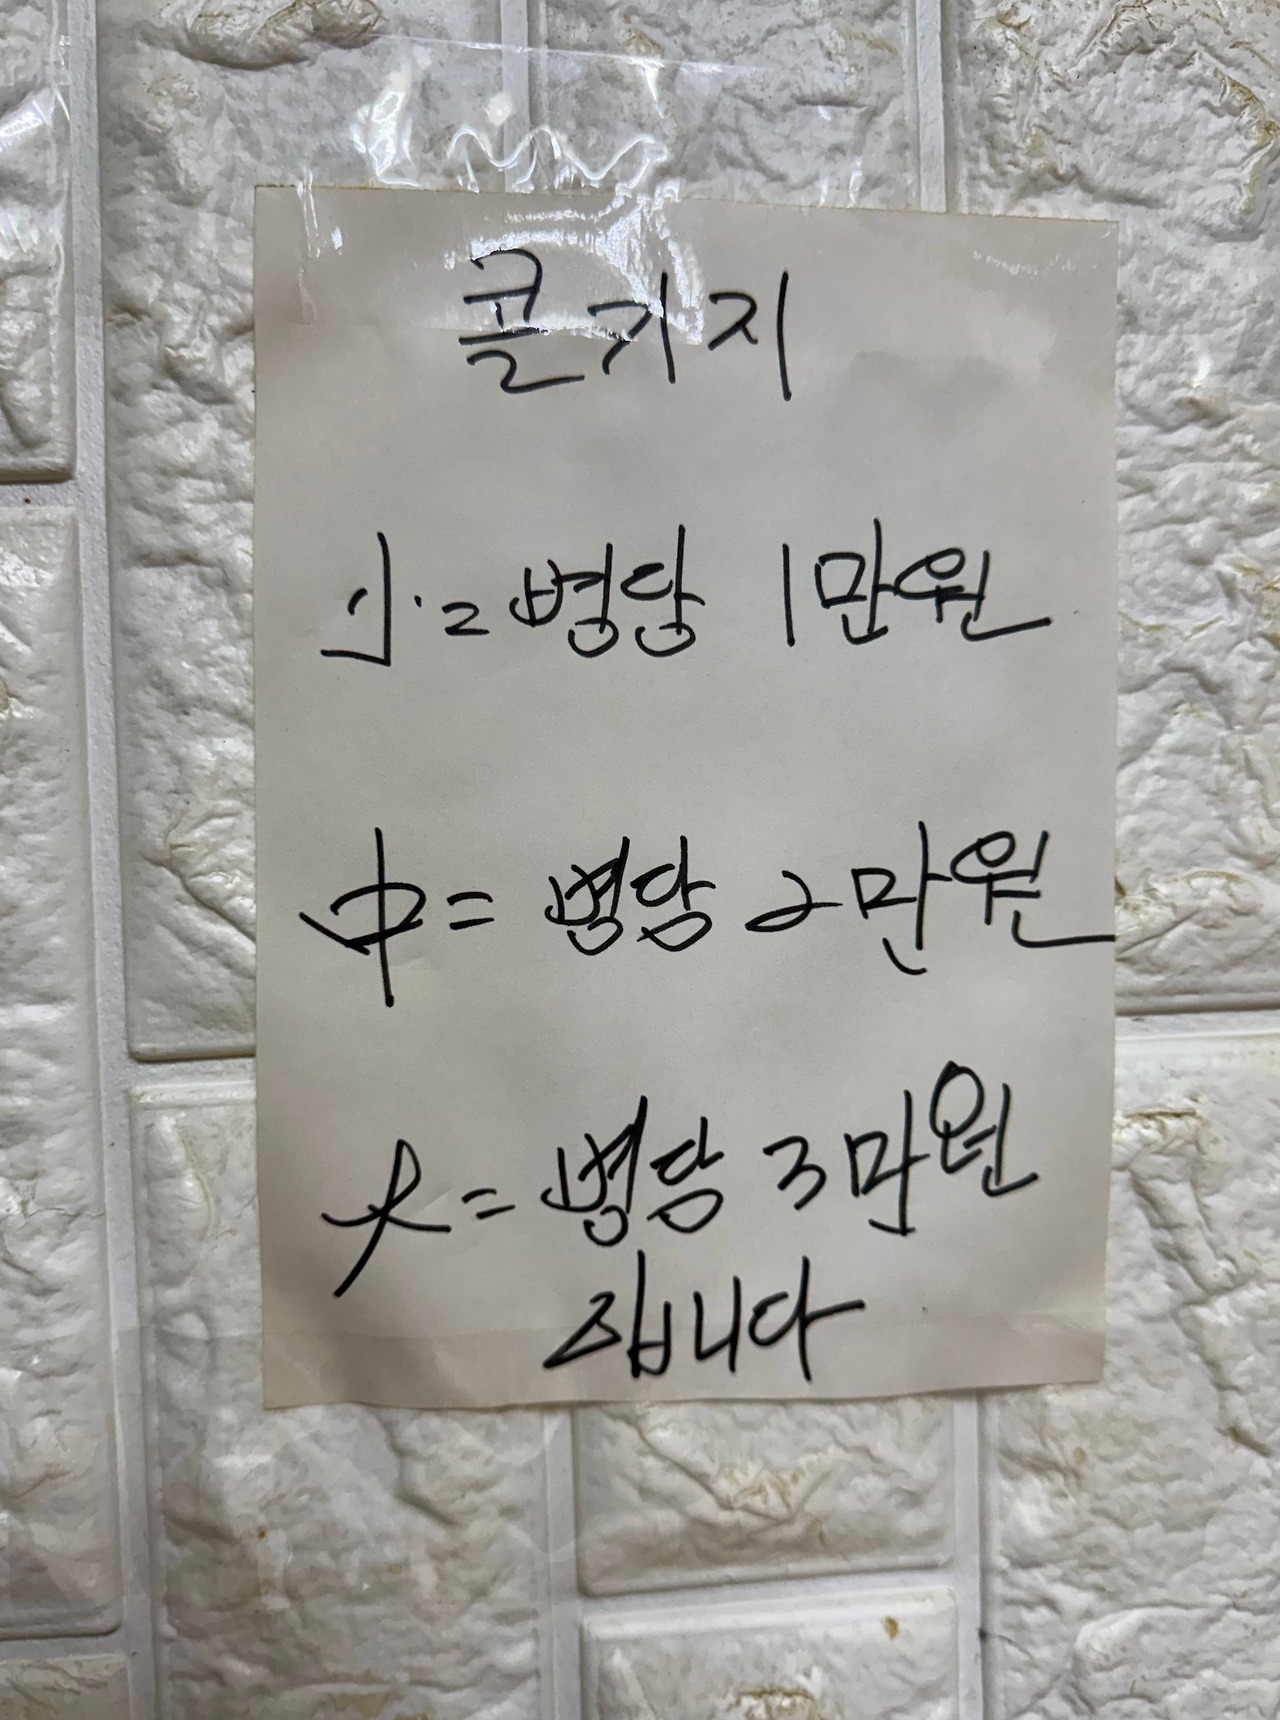 콜키지
小= 병당 1만원
中= 병당 2만원
大= 병당 3만원
입니다